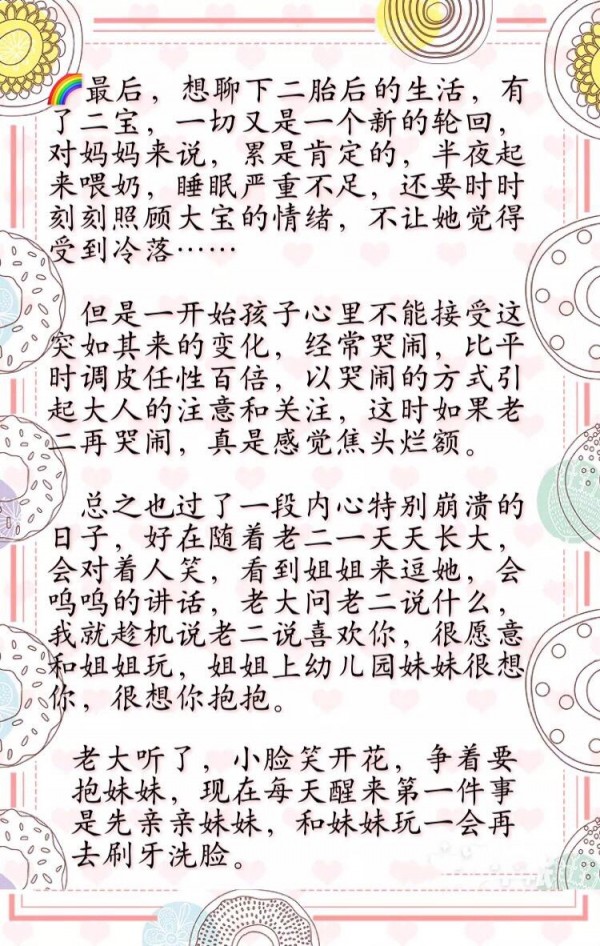 最后，想聊下二胎后的生活，有
了二宝，一切又是一个新的轮回，
对妈妈来说，累是肯定的，半夜起
来喂奶，睡眠严重不足，还要时时
刻刻照顾大宝的情绪，不让她觉得
受到冷落……
但是一开始孩子心里不能接受这
突如其来的变化，经常哭闹，比平
时调皮任性百倍，以哭闹的方式引
起大人的注意和关注，这时如果老
二再哭闹，真是感觉焦头烂额。
总之也过了一段内心特别崩溃的
日子，好在随着老二一天天长大，
会对着人笑，看到姐姐来逗她，会
呜呜的讲话，老大问老二说什么，
我就趁机说老二说喜欢你，很愿意
和姐姐玩，姐姐上幼儿园妹妹很想
你，很想你抱抱。
老大听了，小脸笑开花，争着要
抱妹妹，现在每天醒来第一件事
是先亲亲妹妹，和妹妹玩一会再
去刷牙洗脸。